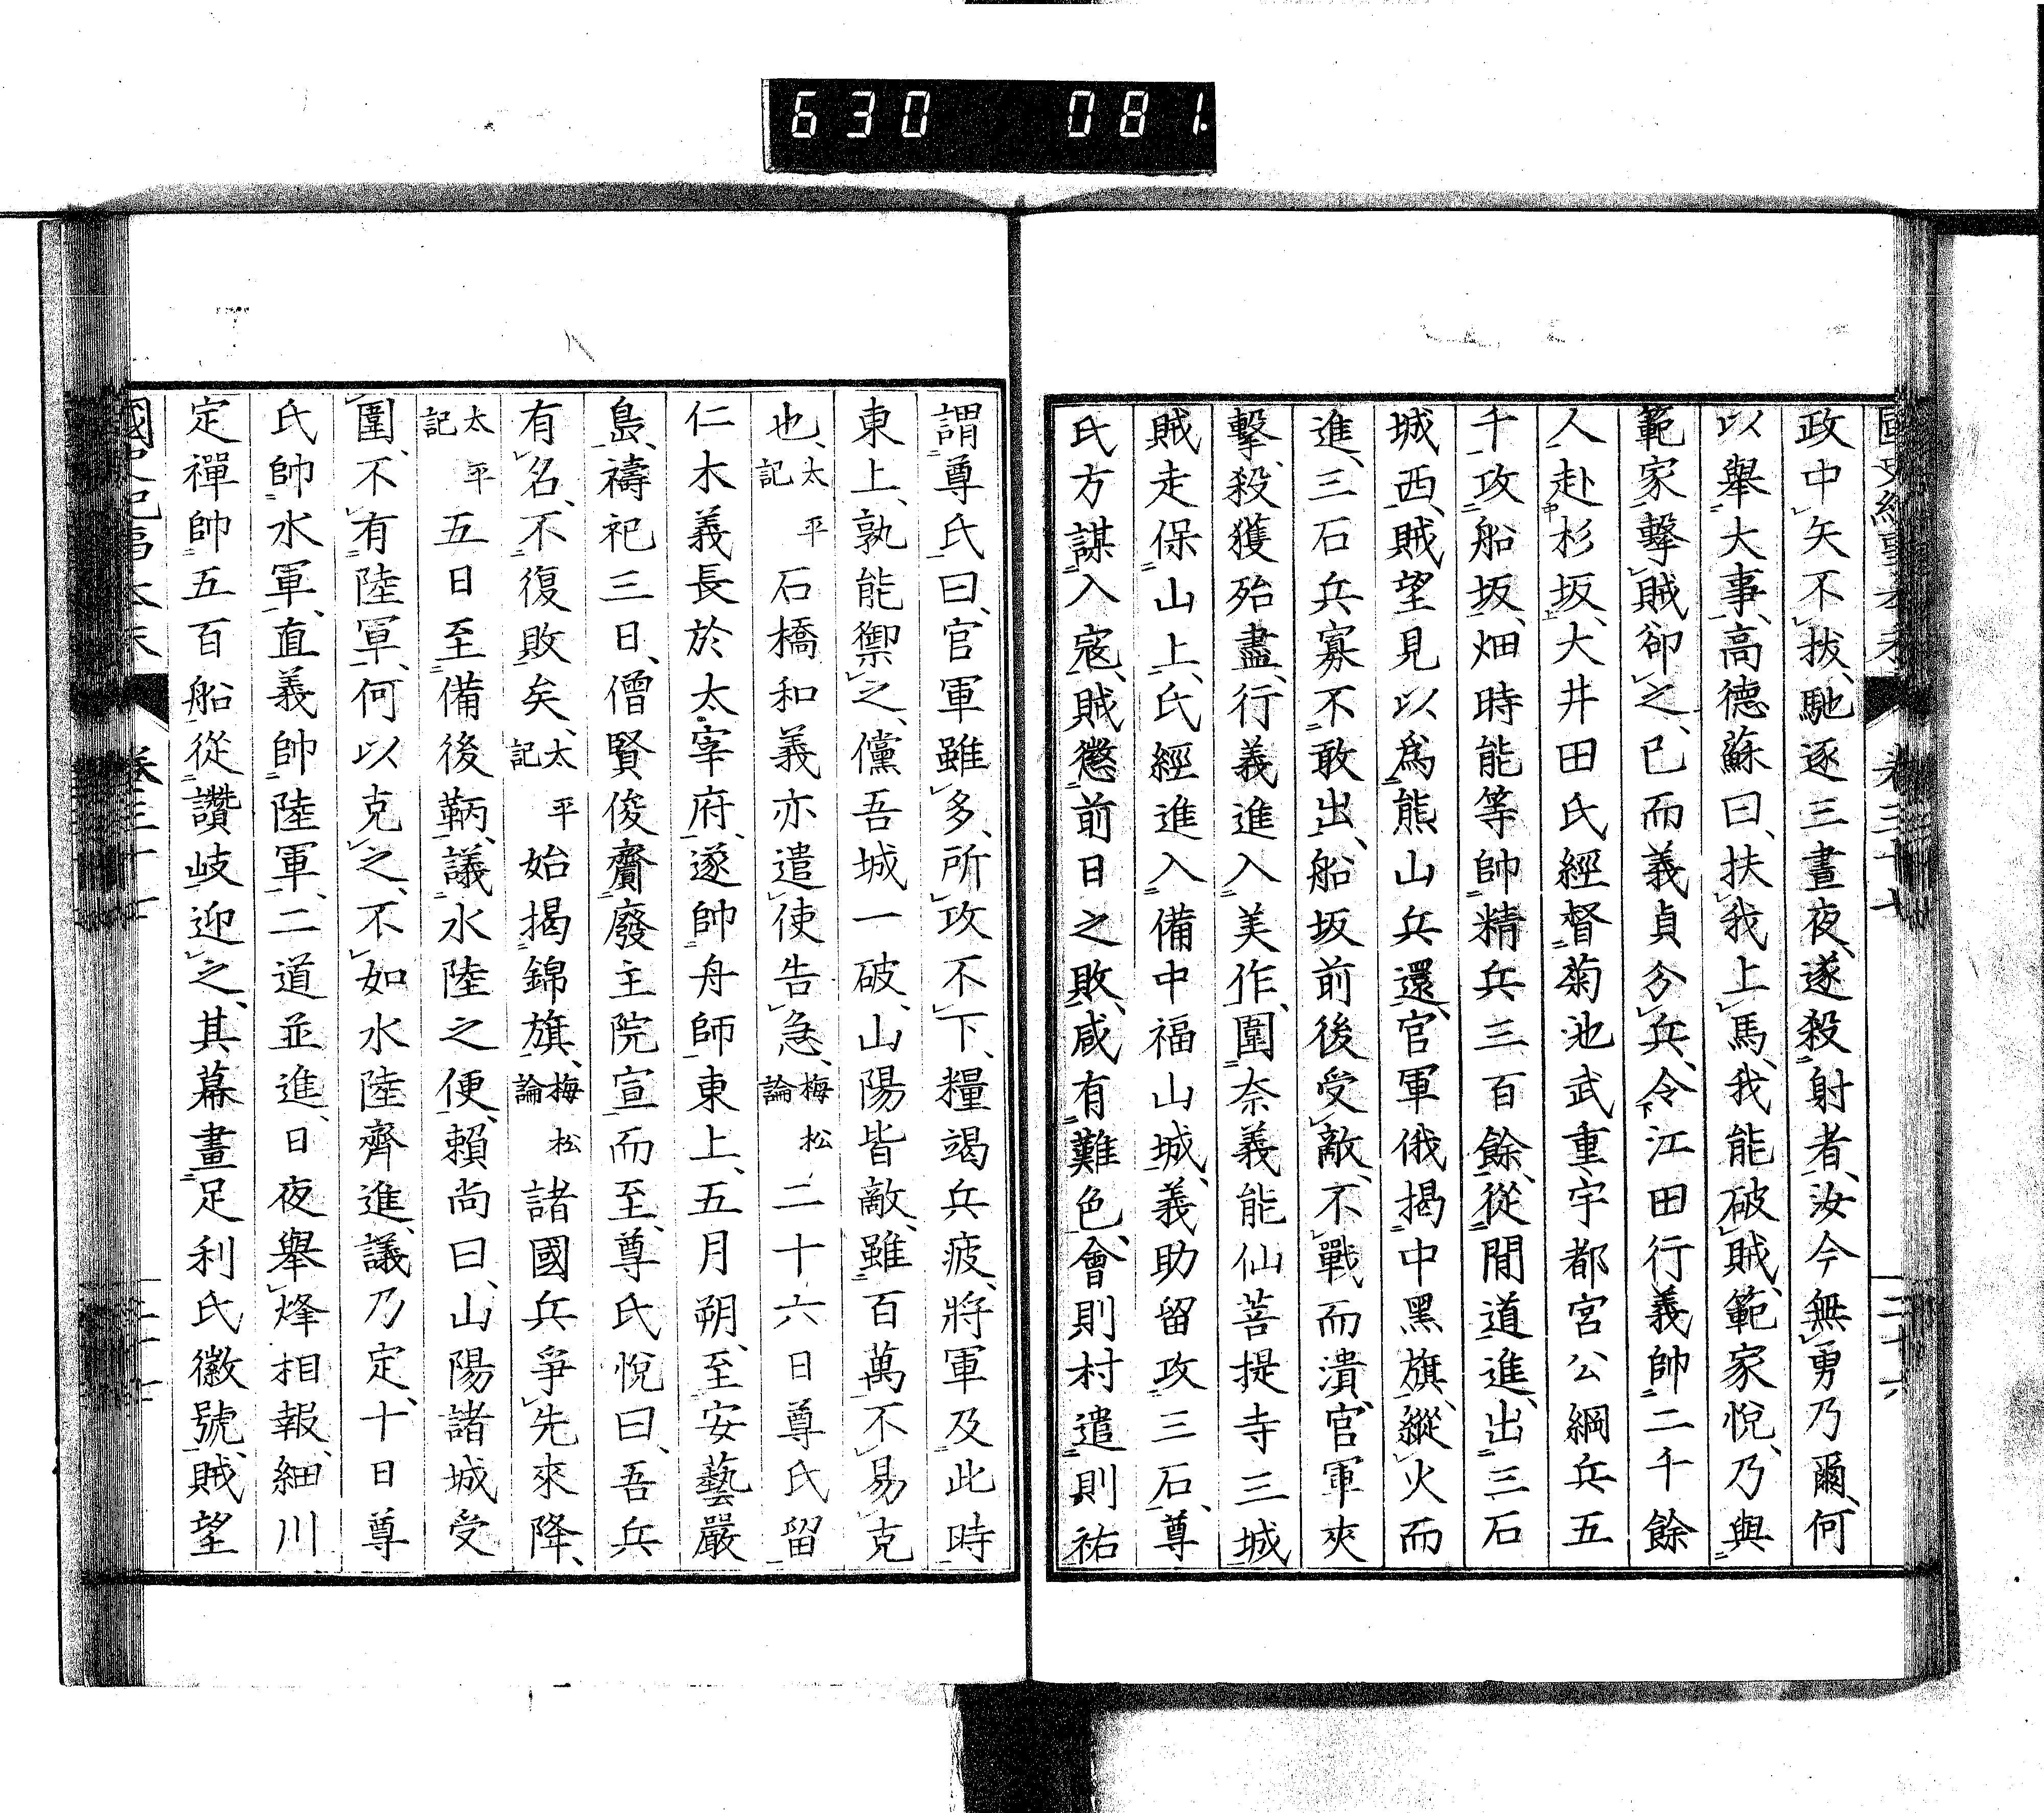 630 081
政中矢不拔、馳逐三晝夜、遂殺射者、汝今無勇乃爾、何
以舉大事、高德蘇曰、扶我上馬、我能破賊、範家悅、乃與
範家擊賊卻之、已而義貞分兵、令江田行義帥二千餘
人赴杉坂、大井田氏經督菊池武重宇都宮公綱兵五
千攻船坂、畑時能等帥精兵三百餘、從間道進、出三石
城西、賊望見以爲熊山兵還、官軍俄揭中黑旗、縱火而
進、三石兵寡不敢出、船坂前後受敵、不戰而潰、官軍夾
擊、殺獲殆盡、行義進入美作、圍奈義能仙菩提寺三城
賊走保山上、氏經進入備中福山城、義助留攻三石、尊
氏方謀入寇、賊懲前日之敗、咸有難色、會則村遣則祐
謂尊氏曰、官軍雖多、所攻不下、糧竭兵疲、將軍及此時
東上、孰能禦之、儻吾城一破、山陽皆敵、雖百萬不易克
也、太平記石橋和義亦遣使告急、梅松論二十六日尊氏留
仁木義長於太宰府、遂帥舟師東上、五月朔、至安藝嚴
島、禱祀三日、僧賢俊齎廢主院宣而至、尊氏悅曰、吾兵
有名、不復敗矣、太平記始揭錦旗、梅松論諸國兵爭先來降、
太平記五日至備後鞆、議水陸之便、賴尚曰、山陽諸城受
圍、不有陸軍、何以克之、不如水陸齊進、議乃定、十日尊
氏帥水軍、直義帥陸軍、二道並進、日夜舉烽相報、細川
定禪帥五百船、從讚岐迎之、其幕畫足利氏徽號、賊望